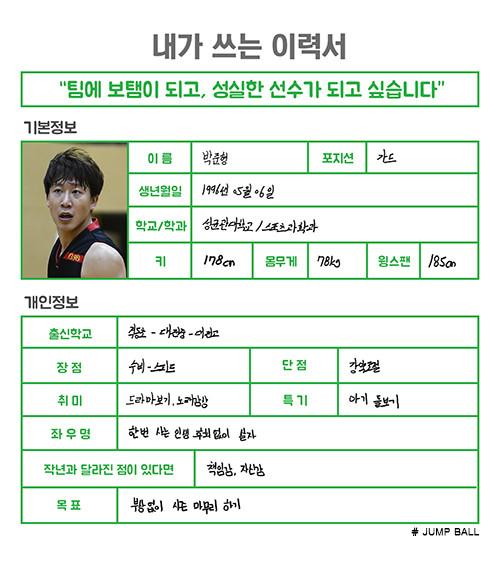 내가 쓰는 이력서
“팀에 보탬이 되고, 성실한 선수가 되고 싶습니다”
기본정보
이 름 박준형 포지션 가드
생년월일 1996년 05월 06일
학교/학과 성균관대학교 / 스포츠과학과
키 178cm 몸무게 78kg 윙스팬 185cm
개인정보
출신학교
장 점 수비 - 스피드 단 점
취 미 드라마보기, 노래감상 특 기 아기 돌보기
좌 우 명 한번 사는 인생 후회없이 살자
작년과 달라진 점이 있다면 책임감, 자신감
목 표 부상없이 시즌 마무리 하기
# JUMP BALL